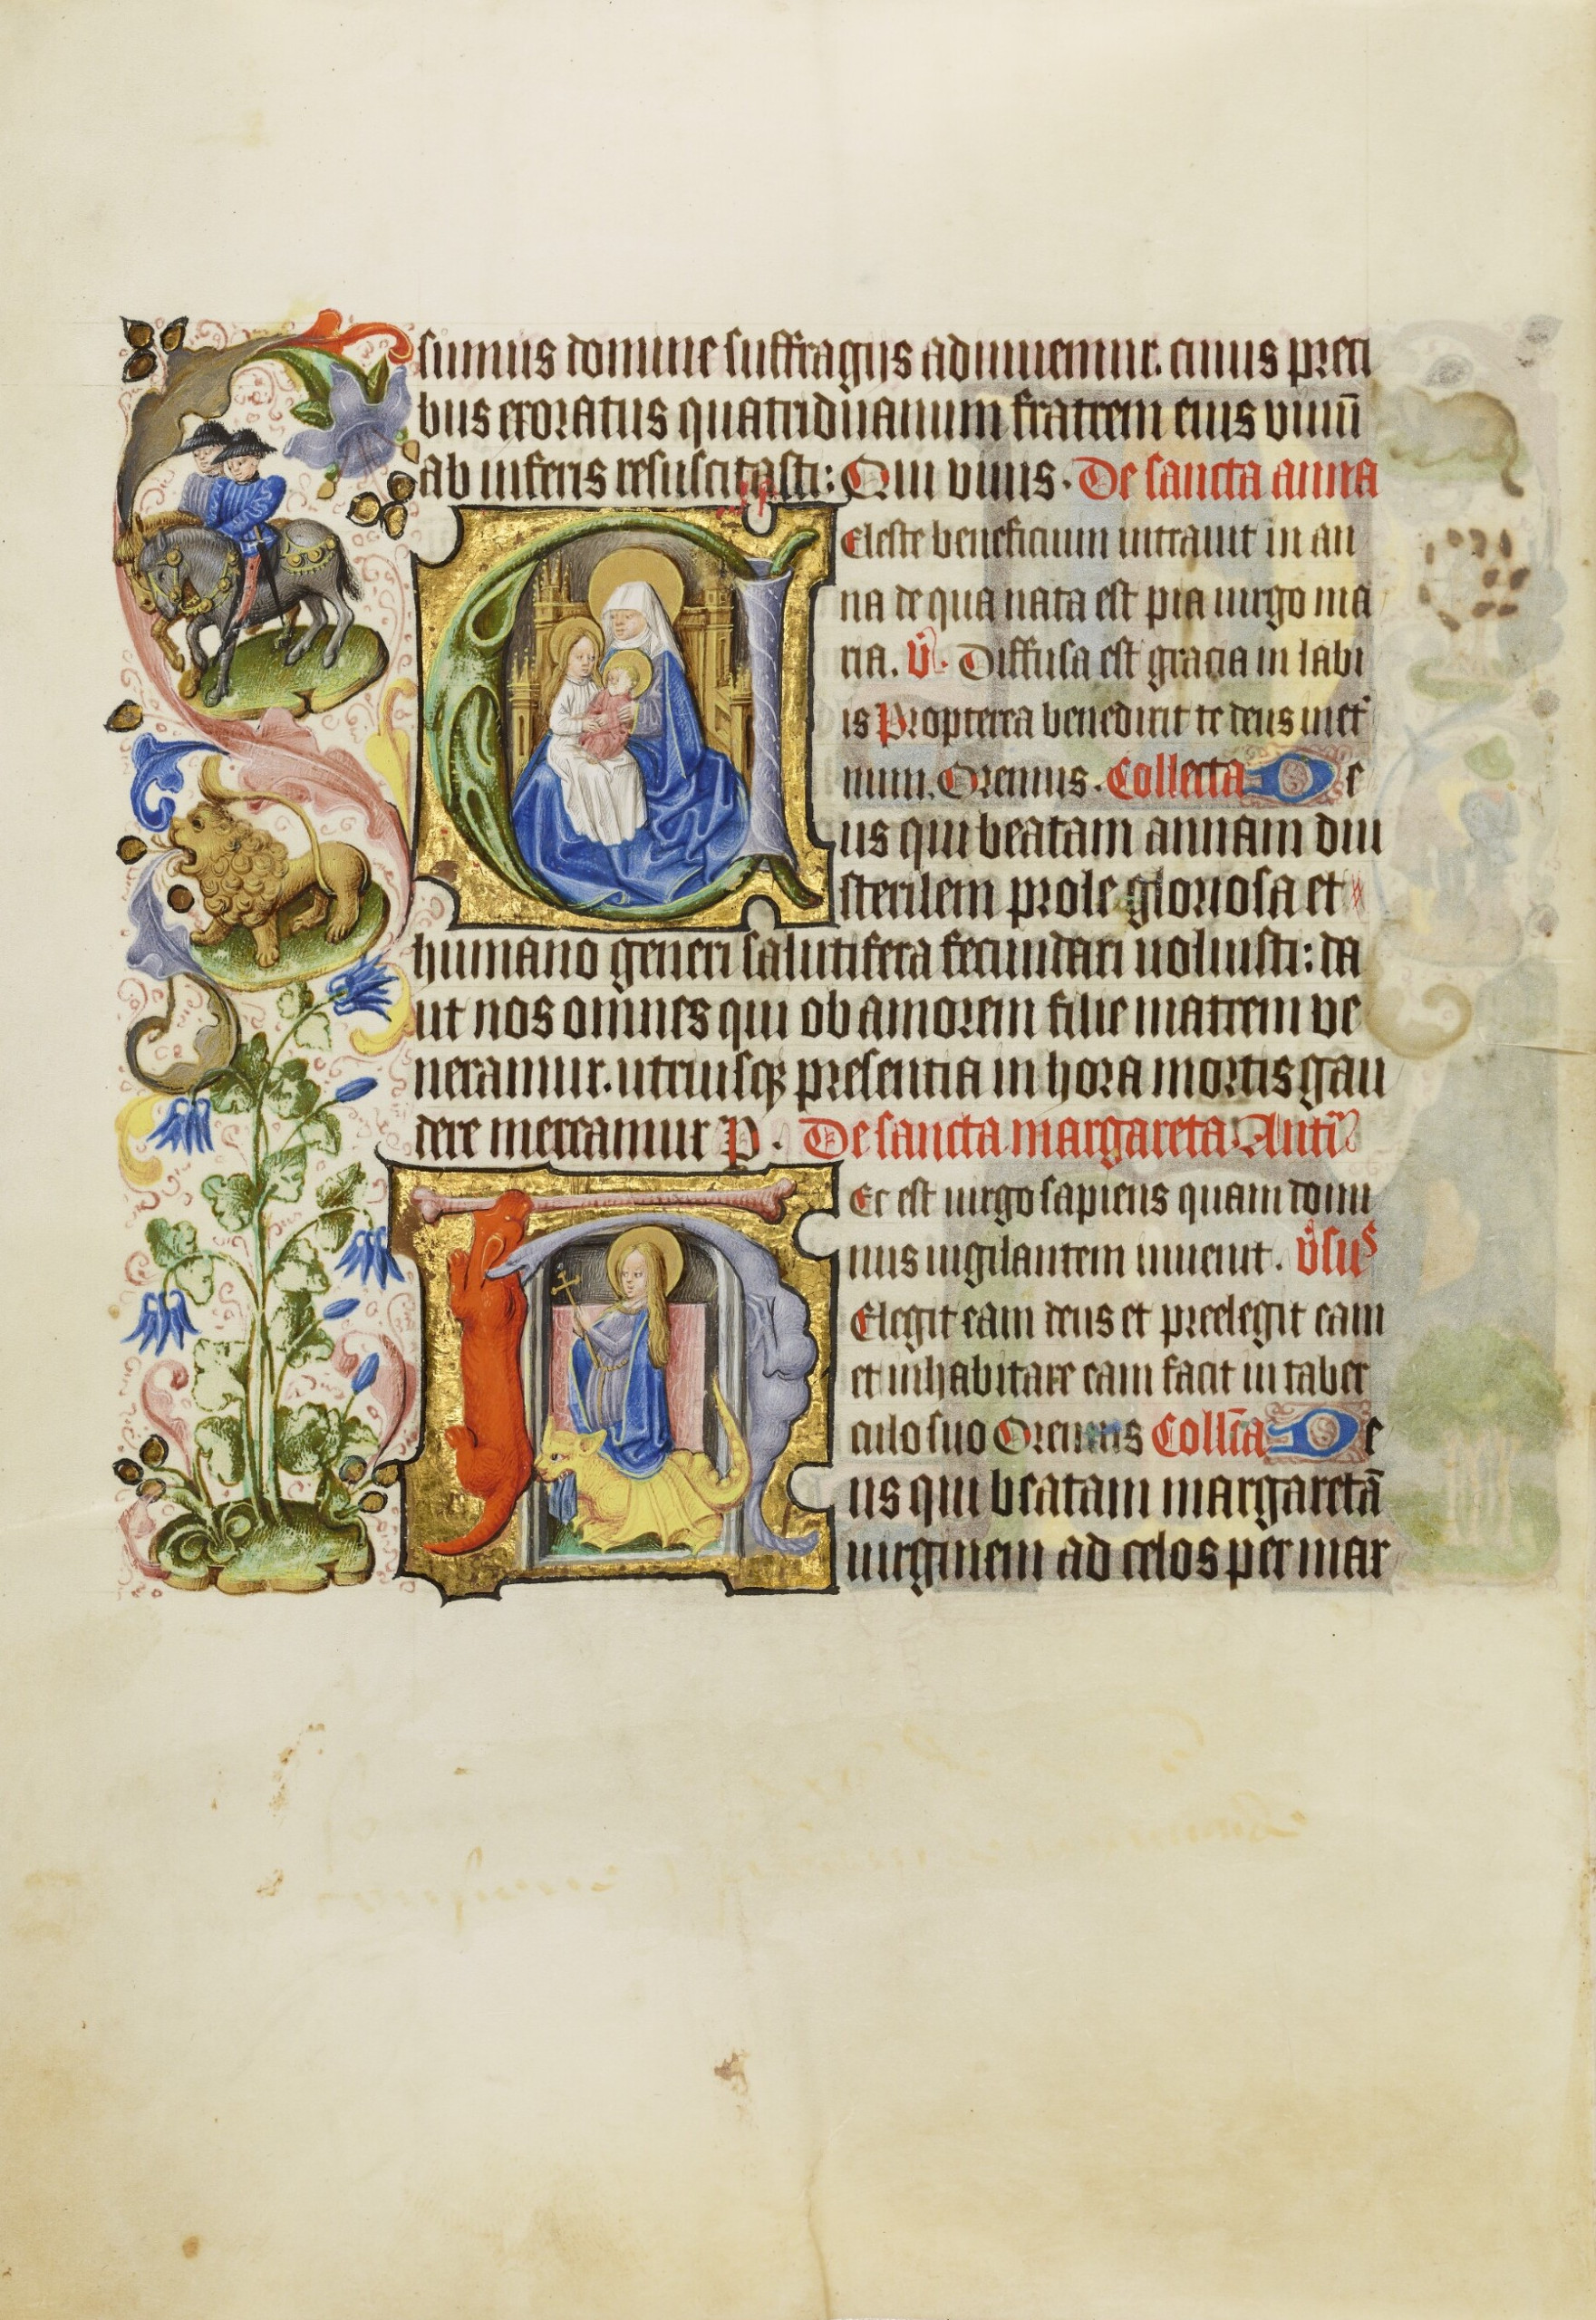 sumus domine suffragiis adiuuemur. cuius preci
bus exoratus quatriduanum fratrem eius viuū
ab inferis resuscitasti: Qui viuis. De sancta anna
Celeste beneficium intrauit in an
na de qua nata est pia uirgo ma
ria. V. Diffusa est gracia in labi
is Propterea benedixit te deus in et
num. Oremus. Collecta De
us qui beatam annam diu
sterilem prole gloriosa et
humano generi salutifera fecundari uoluisti: da
ut nos omnes qui ob amorem filie matrem ve
neramur. utriusqꝫ presentia in hora mortis gau
dere mereamur P. De sancta margareta Anti
Hec est uirgo sapiens quam domi
nus uigilantem inuenit. Vsus
Elegit eam deus et preelegit eam
et inhabitare eam facit in taber
culo suo Oremus Collc̄a De
us qui beatam margaretā
uirginem ad celos per mar